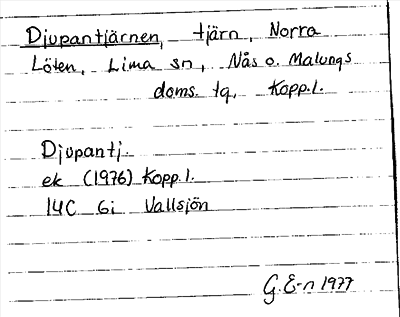 Djupantjärnen, tjärn, Norra
Löten, Lima sn, Nås o. Malungs
doms. tq, Kopp.l.
Djupantj.
ek (1976) Kopp.l.
14C 6i Vallsjön
G.E-n 1977